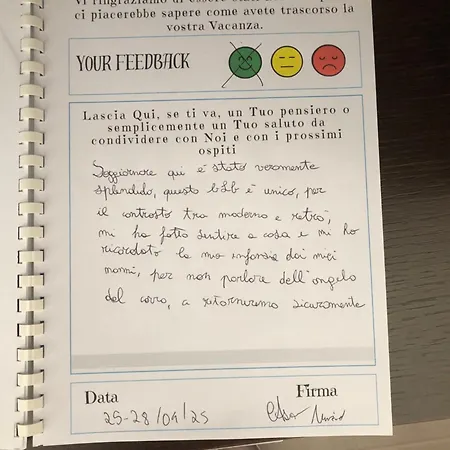 ci piacerebbe sapere come avete trascorso la
vostra Vacanza.
YOUR FEEDBACK
Lascia Qui, se ti va, un Tuo pensiero o
semplicemente un Tuo saluto da
condividere con Noi e con i prossimi
ospiti
Soggiornare qui è stato veramente
splendido, questo b&b è unico, per
il contrasto tra moderno e retrò,
mi ha fatto sentire a casa e mi ha
ricordato la mia infanzia dai miei
nonni, per non parlare dell'angolo
del, a ritorneremo sicuramente
Data
Firma
25-28/04/25